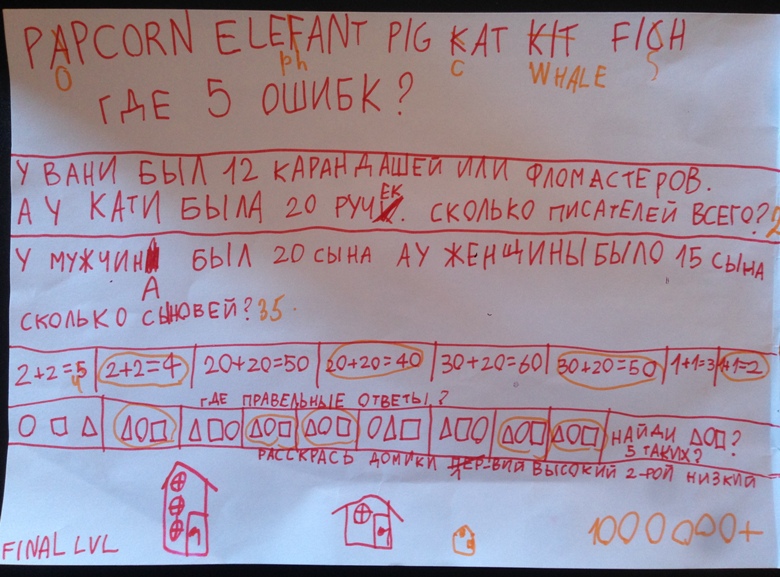 PAPCORN ELEFANT PIG KAT KIT FISH
O ph C WHALE S
ГДЕ 5 ОШИБК?
У ВАНИ БЫЛ 12 КАРАНДАШЕЙ ИЛИ ФЛОМАСТЕРОВ.
А У КАТИ БЫЛА 20 РУЧЕК. СКОЛЬКО ПИСАТЕЛЕЙ ВСЕГО?
У МУЖЧИНА БЫЛ 20 СЫНА АУ ЖЕНЩИНЫ БЫЛО 15 СЫНА
СКОЛЬКО СЫНОВЕЙ? 35.
2+2=5 4 2+2=4 20+20=50 20+20=40 30+20=60 30+20=50 1+1=3 1+1=2
ГДЕ ПРАВЕЛЬНЫЕ ОТВЕТЫ?
НАЙДИ △○□?
5 ТАКИХ?
РАССКРАСЬ ДОМИКИ ПЕР-ВИЙ ВЫСОКИЙ 2-РОЙ НИЗКИЙ
FINAL LVL 1000000+